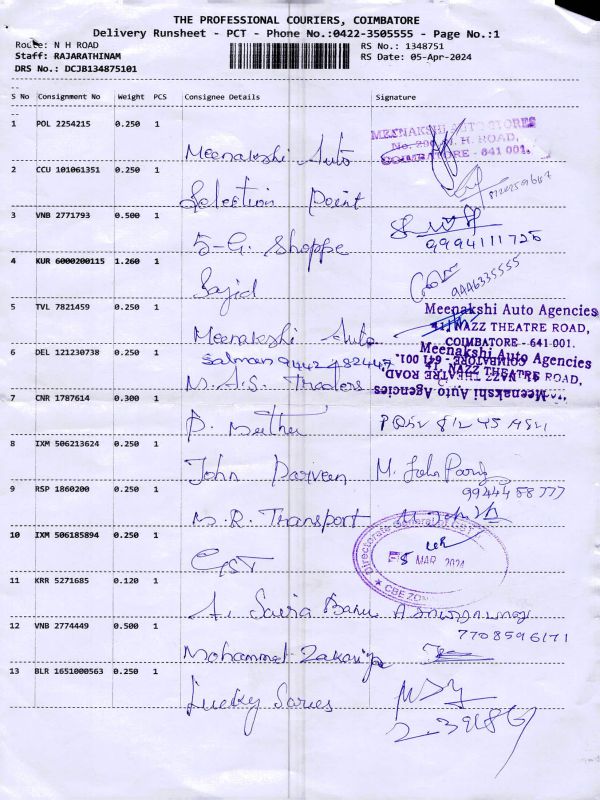 THE PROFESSIONAL COURIERS, COIMBATORE
Delivery Runsheet - PCT - Phone No.:0422-3505555 - Page No.:1
Route: N H ROAD
RS No.: 1348751
Staff: RAJARATHINAM
RS Date: 05-Apr-2024
DRS No.: DCJB134875101
S No Consignment No Weight PCS Consignee Details Signature
1 POL 2254215 0.250 1 Meenakshi Auto
MEENAKSHI AUTO STORES
No. N. H. ROAD,
COIMBATORE - 641 001.
2 CCU 101061351 0.250 1 Selection Point
3 VNB 2771793 0.500 1 5-G. Shoppe
9994111725
4 KUR 6000200115 1.260 1 Sajid
9446335555
5 TVL 7821459 0.250 1 Meenakshi Auto
Meenakshi Auto Agencies
41, NAZZ THEATRE ROAD,
COIMBATORE - 641 001.
6 DEL 121230738 0.250 1 Salman 9442482447
M.A.S. Traders
Meenakshi Auto Agencies
41, NAZZ THEATRE ROAD,
COIMBATORE - 641 001.
Meenakshi Auto Agencies
41, NAZZ THEATRE ROAD,
COIMBATORE - 641 001.
7 CNR 1787614 0.300 1
8 IXM 506213624 0.250 1 John Parveen
9944488777
9 RSP 1860200 0.250 1 M.R. Transport
10 IXM 506185894 0.250 1 GST
Directorate General of
MAR 2024
CBE ZON
11 KRR 5271685 0.120 1 A. Saira Banu
7708596171
12 VNB 2774449 0.500 1 Mohammet Zakariya
13 BLR 1651000563 0.250 1 Lucky Sarees